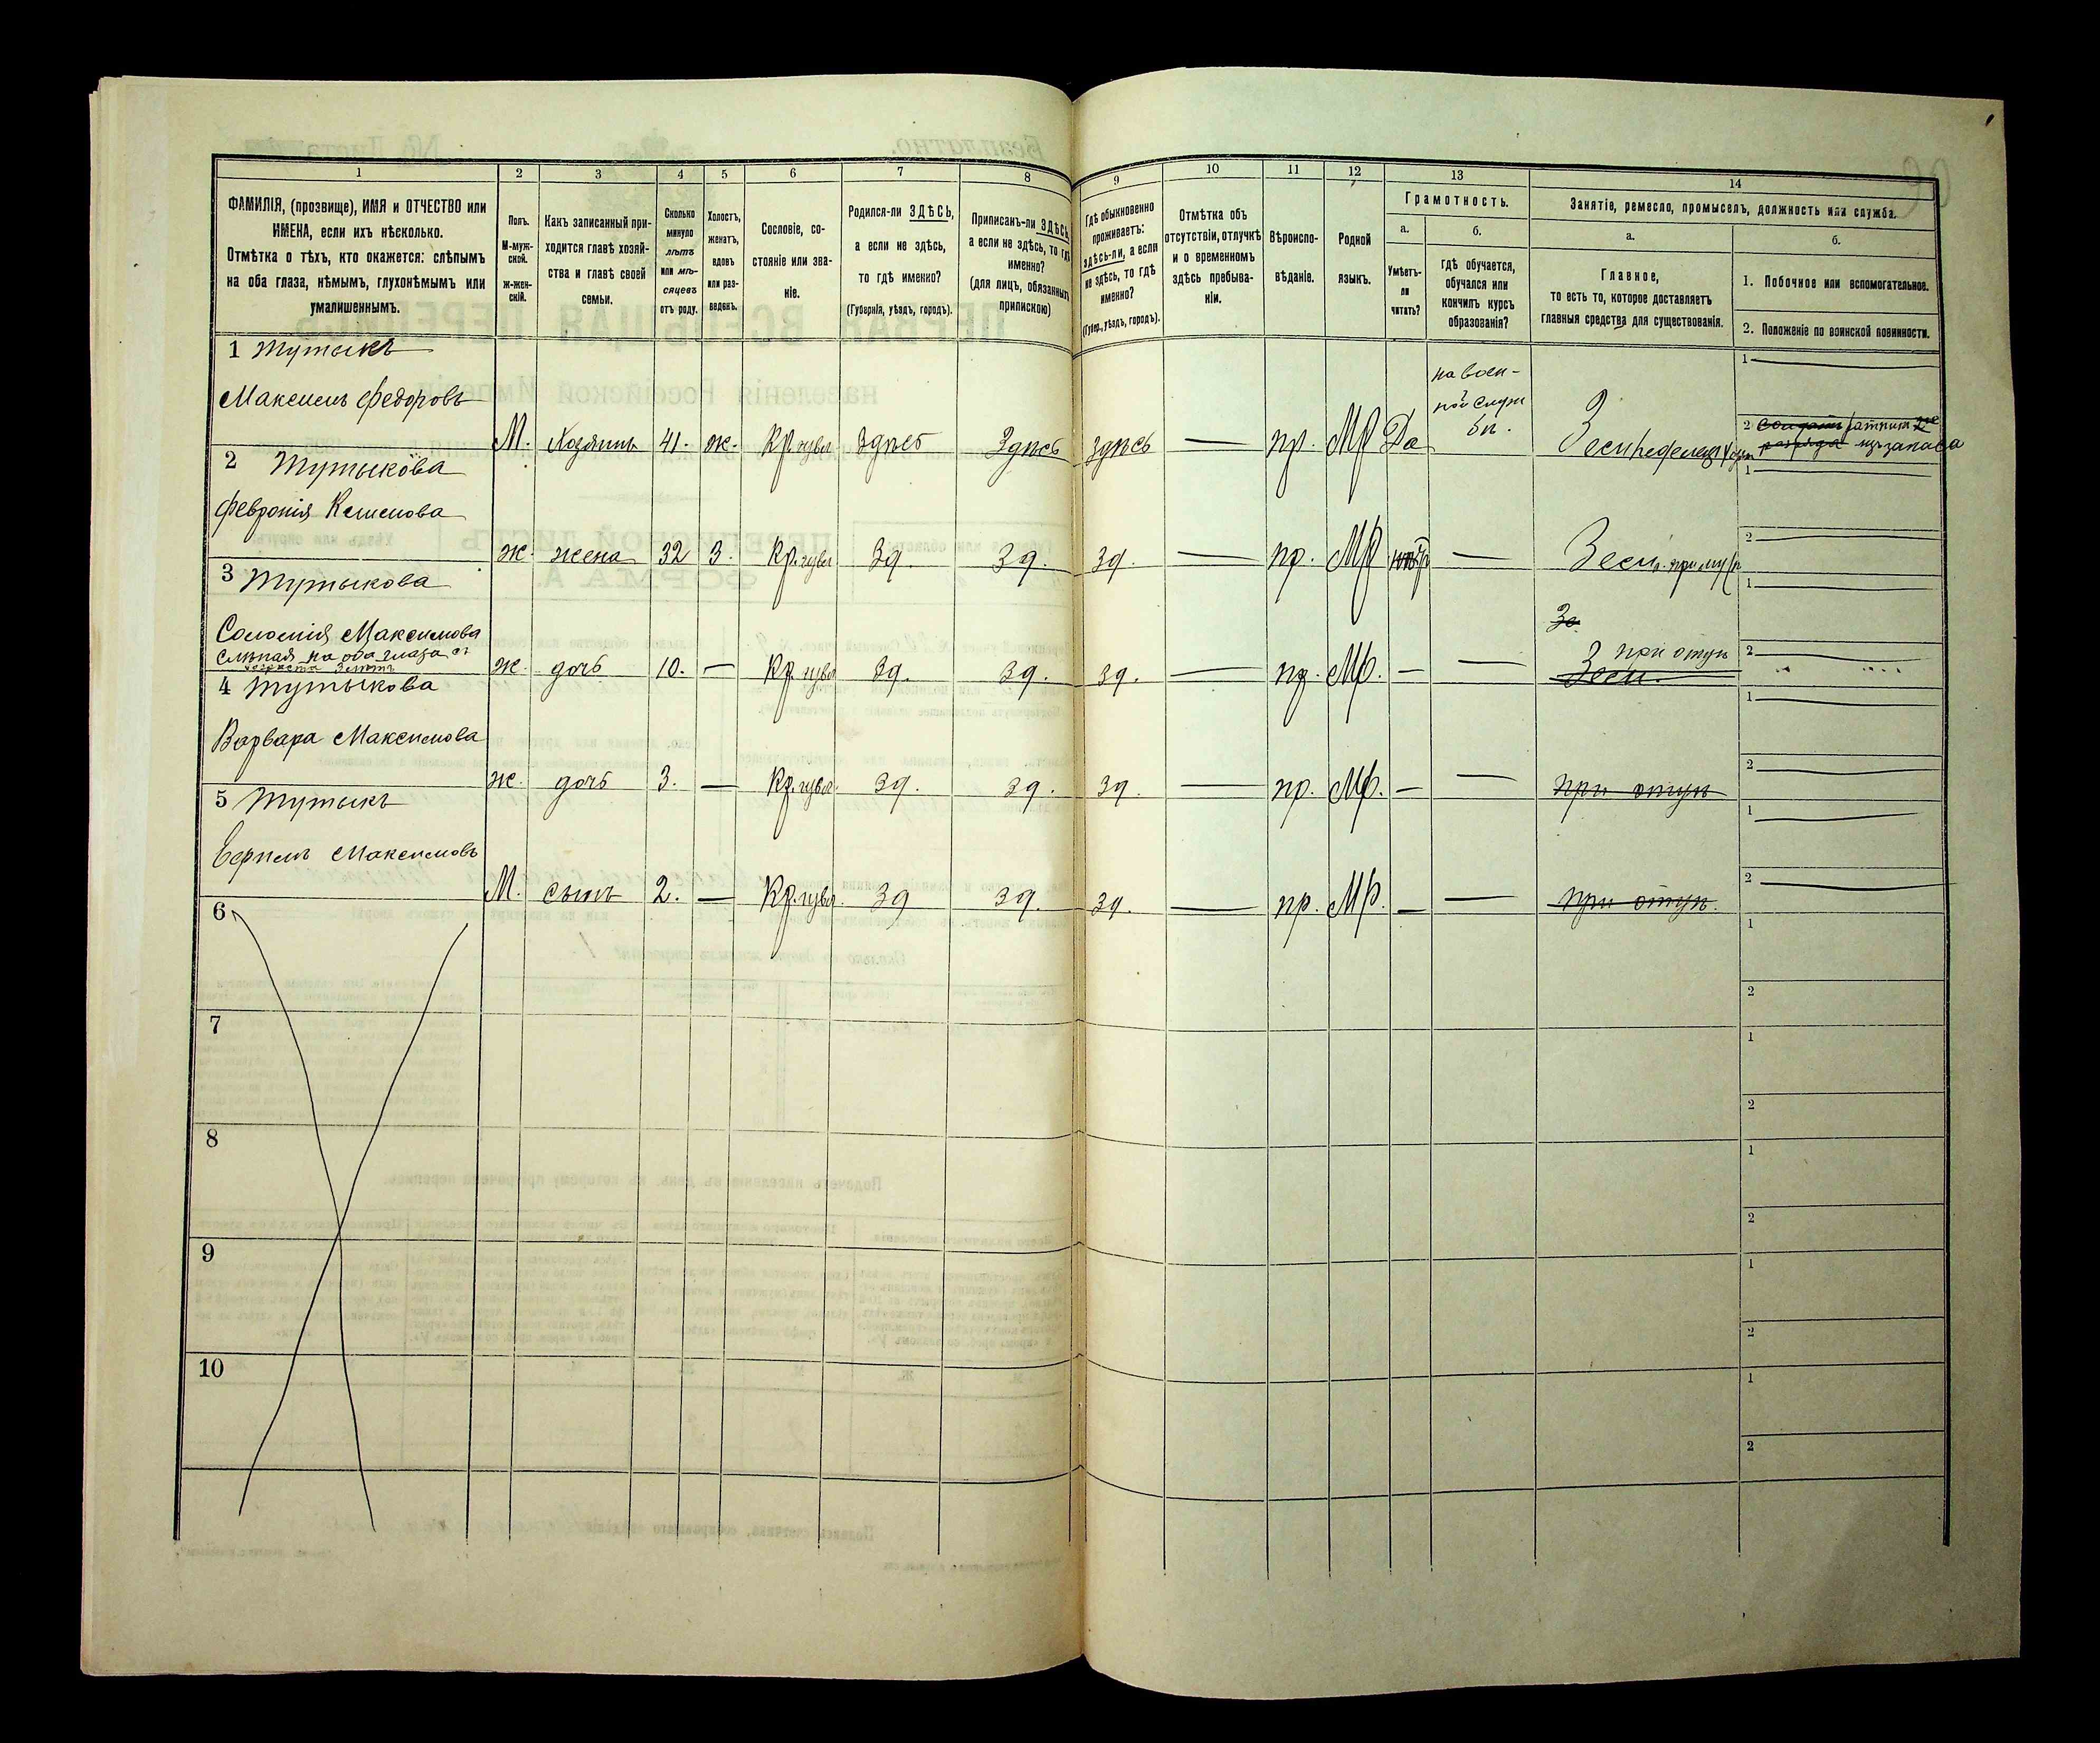 1 2 3 4 5 6 7 8 9 10 11 12 13 14
ФАМИЛІЯ, (прозвище), ИМЯ и ОТЧЕСТВО или
ИМЕНА, если ихъ нѣсколько.
Отмѣтка о тѣхъ, кто окажется: слѣпымъ
на оба глаза, нѣмымъ, глухонѣмымъ или
умалишеннымъ.
Полъ.
М-муж-
ской.
ж-жен-
скій.
Какъ записанный при-
ходится главѣ хозяй-
ства и главѣ своей
семьи.
Сколько
минуло
лѣтъ
или мѣ-
сяцевъ
отъ роду.
Холостъ,
женатъ,
вдовъ
или раз-
веденъ.
Сословіе, со-
стояніе или зва-
ніе.
Родился-ли ЗДѢСЬ,
а если не здѣсь,
то гдѣ именно?
(Губернія, уѣздъ, городъ).
Приписанъ-ли ЗДѢСЬ,
а если не здѣсь, то гдѣ
именно?
(для лицъ, обязанныхъ
припискою)
Гдѣ обыкновенно
проживаетъ:
здѣсь-ли, а если
не здѣсь, то гдѣ
именно?
(Губер., уѣздъ, городъ).
Отмѣтка объ
отсутствіи, отлучкѣ
и о временномъ
здѣсь пребыва-
ніи.
Вѣроиспо-
вѣданіе.
Родной
языкъ.
Грамотность.
а.
Умѣетъ-
ли
читать?
б.
гдѣ обучается,
обучался или
кончилъ курсъ
образованія?
Занятіе, ремесло, промыселъ, должность или служба.
а.
Главное,
то есть то, которое доставляетъ
главныя средства для существованія.
б.
1. Побочное или вспомогательное.
2. Положеніе по воинской повинности.
1 Тутыкъ
Максимъ Федоровъ
М. Хозяинъ 41. ж. Кр. Здѣсь Здѣсь здѣсь — пр. Мр Да
на воен-
ной служ
бѣ.
1 —
2 изъ запаса
2 Тутыкова
Февронія Климова
ж. жена 32 З. Кр. Зд. Зд. Зд. — пр. Мр —
1 —
2 —
3 Тутыкова
Соломія Максимова
слѣпая на оба глаза съ
ж. дочь 10. — Кр. Зд. Зд. Зд. — пр. Мр. — — при отцѣ
1 —
2 —
4 Тутыкова
Варвара Максимова
ж. дочь 3. — Кр. Зд. Зд. Зд. — пр. Мр. — — при отцѣ
1 —
2 —
5 Тутыкъ
Максимовъ
М. сынъ 2. — Кр. Зд Зд. Зд. — пр. Мр. — — при отцѣ.
1 —
2 —
6
1
2
7
1
2
8
1
2
9
1
2
10
1
2